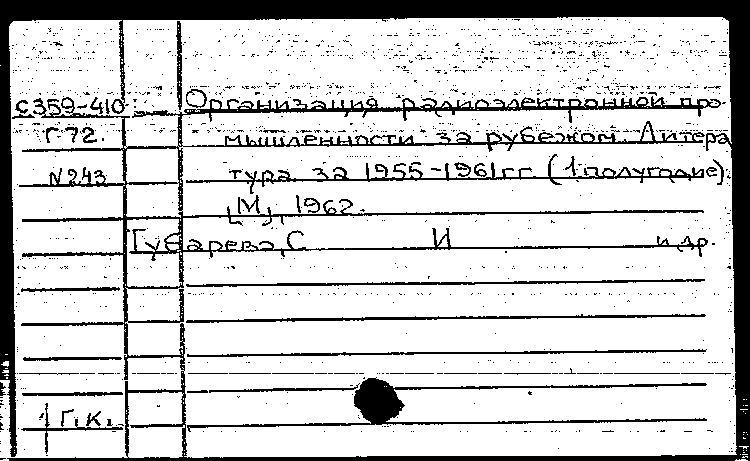 С359-410 Организация радиоэлектронной про-
Г72. мышленности за рубежом. Литера
N243 тура за 1955-1961гг (1 полугодие).
[М], 1962.
Губарева, С И и др.
1 Г.К.